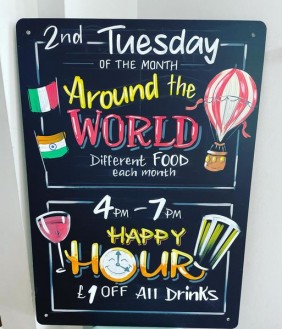 2nd Tuesday
OF THE MONTH
Around the
WORLD
Different FOOD
each month
4PM - 7PM
HAPPY
HOUR
£1 OFF All Drinks